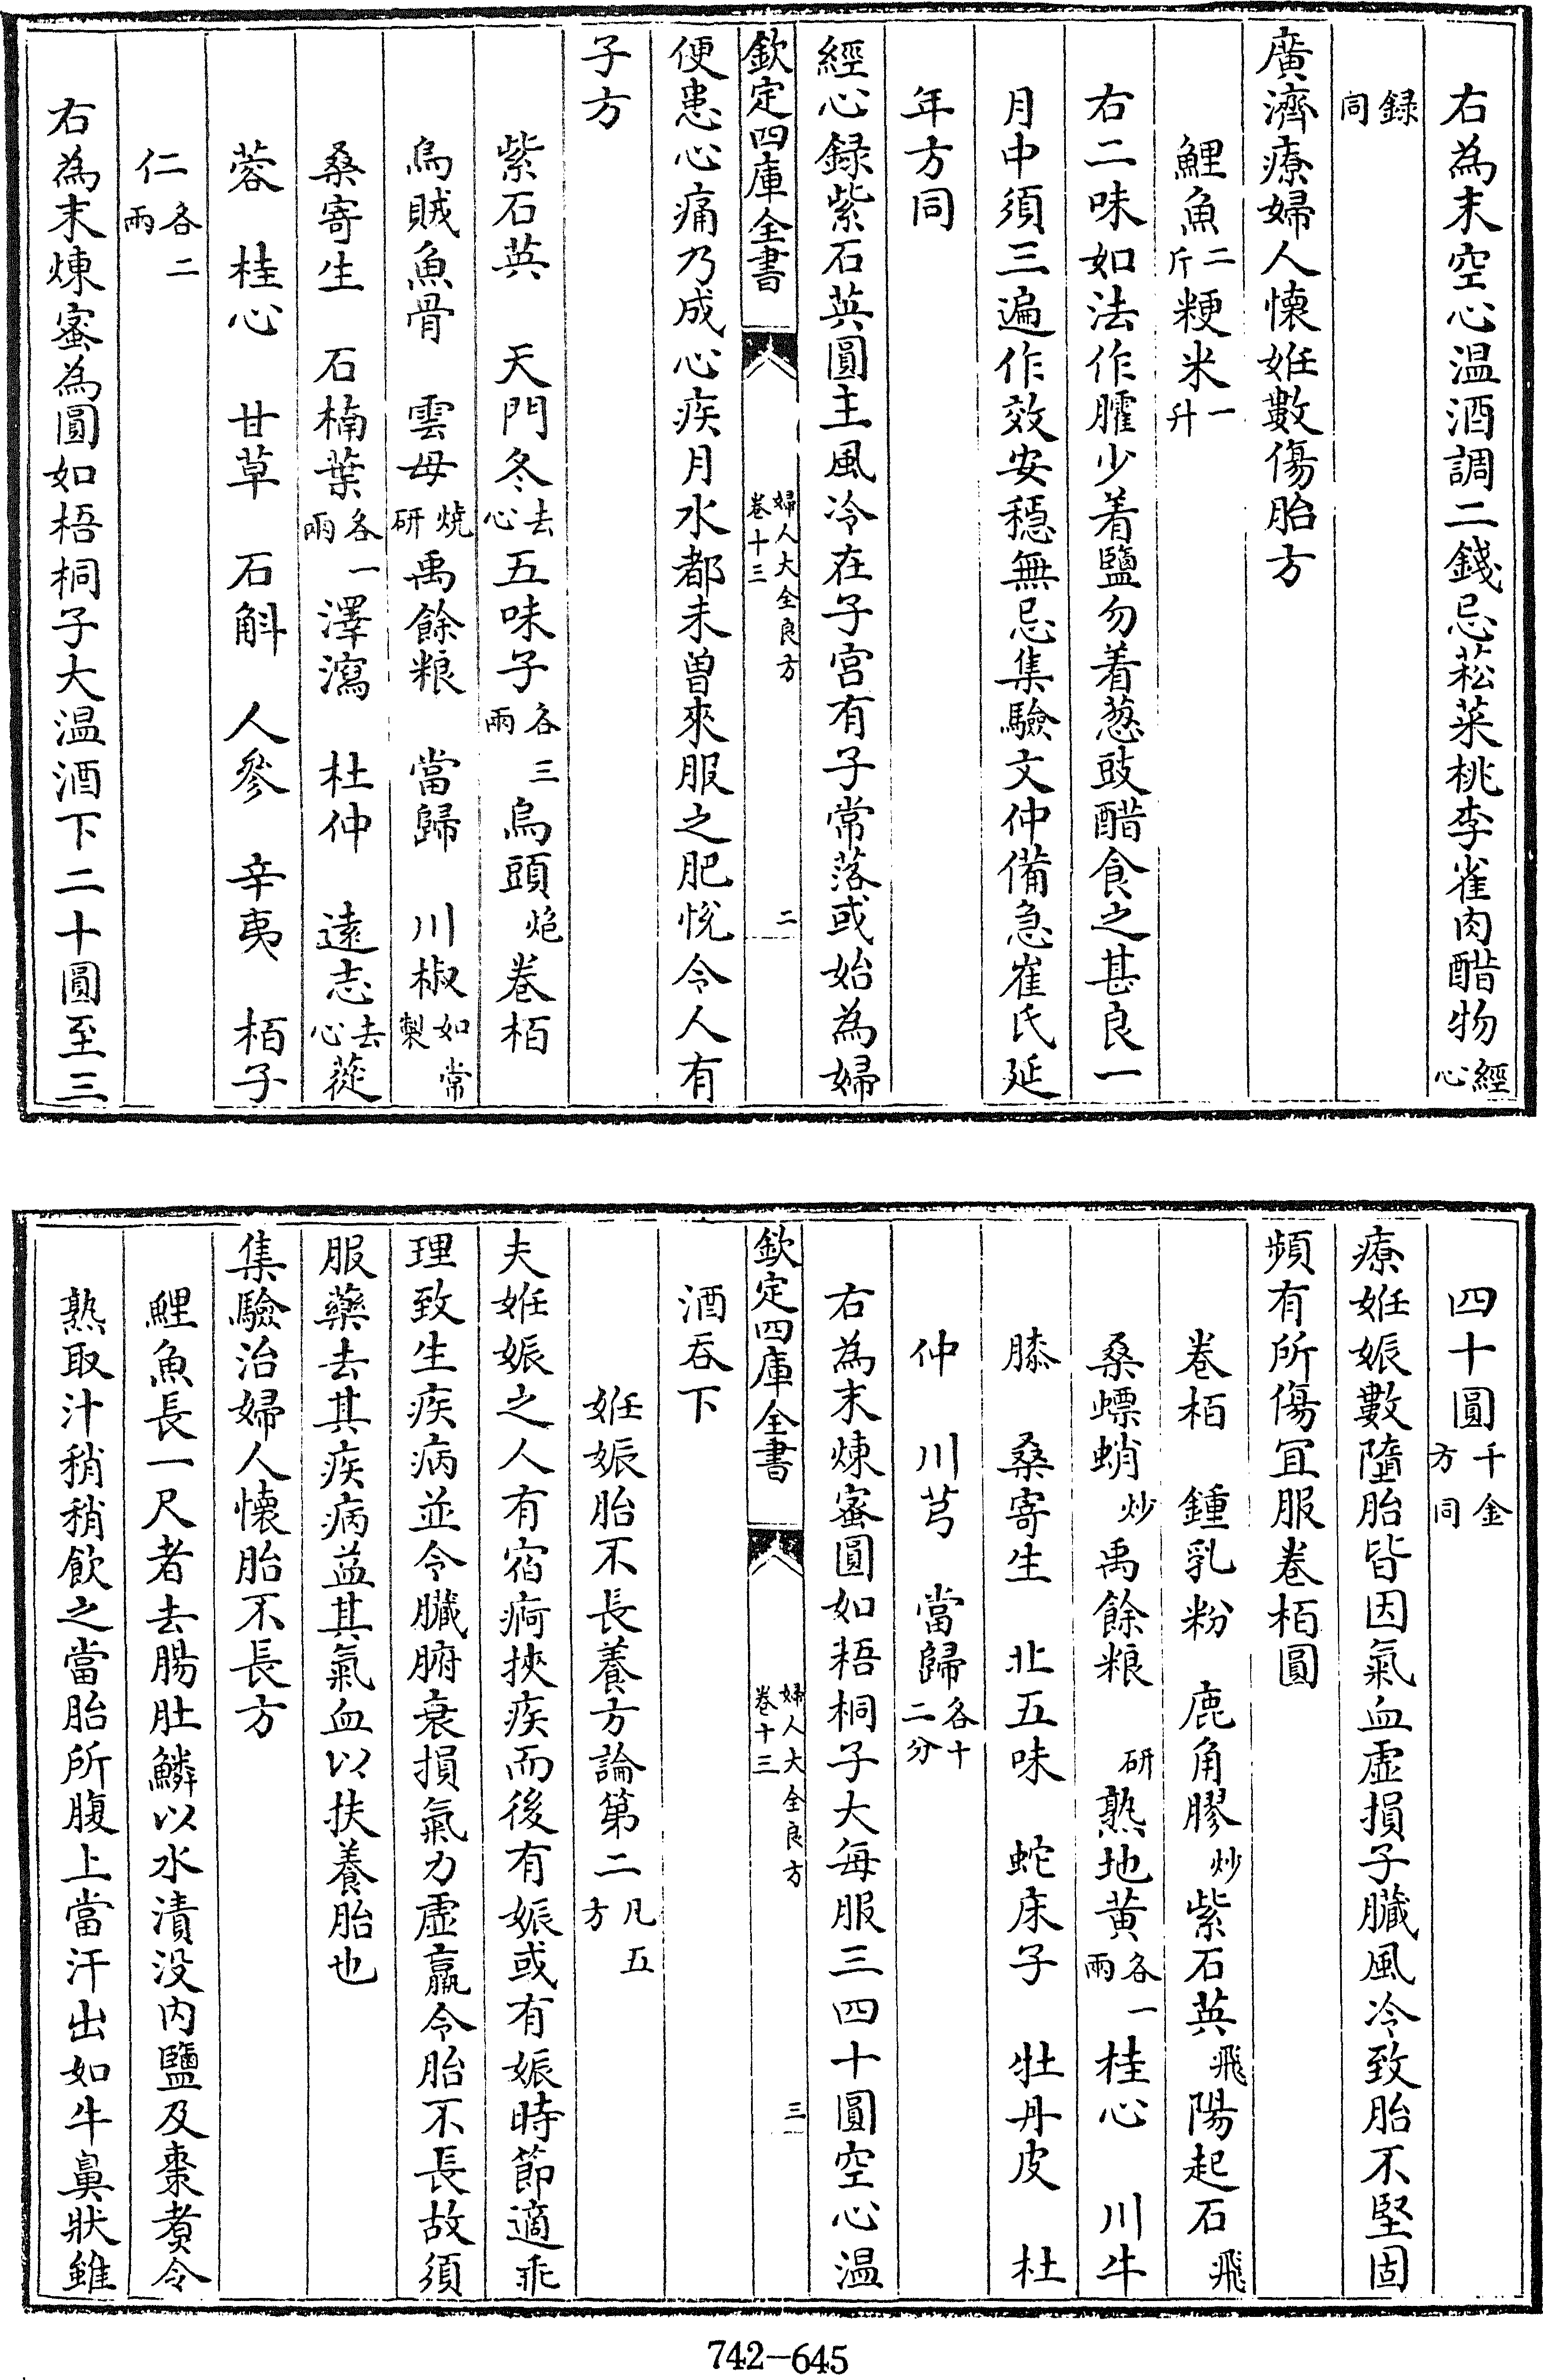 右為末空心温酒調二錢忌菘菜桃李雀肉醋物經心
録同
廣濟療婦人懐姙數傷胎方
鯉魚二斤 粳米一升
右二味如法作臛少着鹽勿着葱豉醋食之甚良一
月中須三遍作效安穏無忌集驗文仲備急崔氏延
年方同
經心録紫石英圓主風冷在子宫有子常落或始為婦
欽定四庫全書 婦人大全良方 卷十三 二
便患心痛乃成心疾月水都未曽來服之肥悅令人有
子方
紫石英 天門冬去心 五味子各三兩 烏頭炮 卷栢
烏賊魚骨 雲母燒研 禹餘粮 當歸 川椒如常製
桑寄生 石楠葉各一兩 澤瀉 杜仲 逺志去心 蓯
蓉 桂心 甘草 石斛 人參 辛夷 栢子
仁各二兩
右為末煉蜜為圓如梧桐子大温酒下二十圓至三
四十圓千金方同
療姙娠數墮胎皆因氣血虛損子臓風冷致胎不堅固
頻有所傷冝服卷栢圓
卷栢 鍾乳粉 鹿角膠炒 紫石英飛 陽起石飛
桑螵蛸炒 禹餘粮研 熟地黄各一兩 桂心 川牛
膝 桑寄生 北五味 蛇床子 牡丹皮 杜
仲 川芎 當歸各十二分
右為末煉蜜圓如梧桐子大每服三四十圓空心温
欽定四庫全書 婦人大全良方 卷十三 三
酒吞下
姙娠胎不長養方論第二凡五方
夫姙娠之人有宿痾挾疾而後有娠或有娠時節適乖
理致生疾病並令臓腑衰損氣力虛羸令胎不長故須
服藥去其疾病益其氣血以扶養胎也
集驗治婦人懐胎不長方
鯉魚長一尺者去腸肚鱗以水漬没内鹽及棗煑令
熟取汁稍稍飲之當胎所腹上當汗出如牛鼻狀雖
742-645